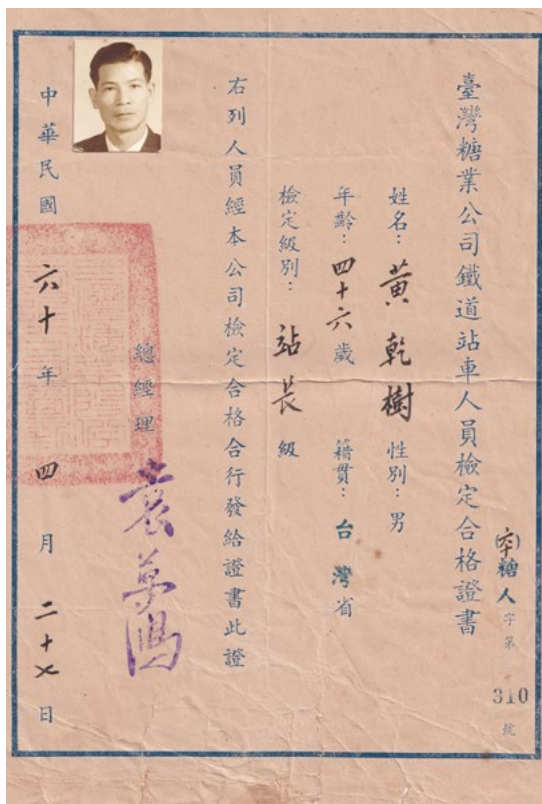 臺灣糖業公司鐵道站車人員檢定合格證書
糖人字第310號
姓名：黃乾樹 性別：男
年齡：四十六歲 籍貫：台灣省
檢定級別：站長級
右列人員經本公司檢定合格合行發給證書此證
總經理 袁夢鴻
中華民國六十年四月二十七日